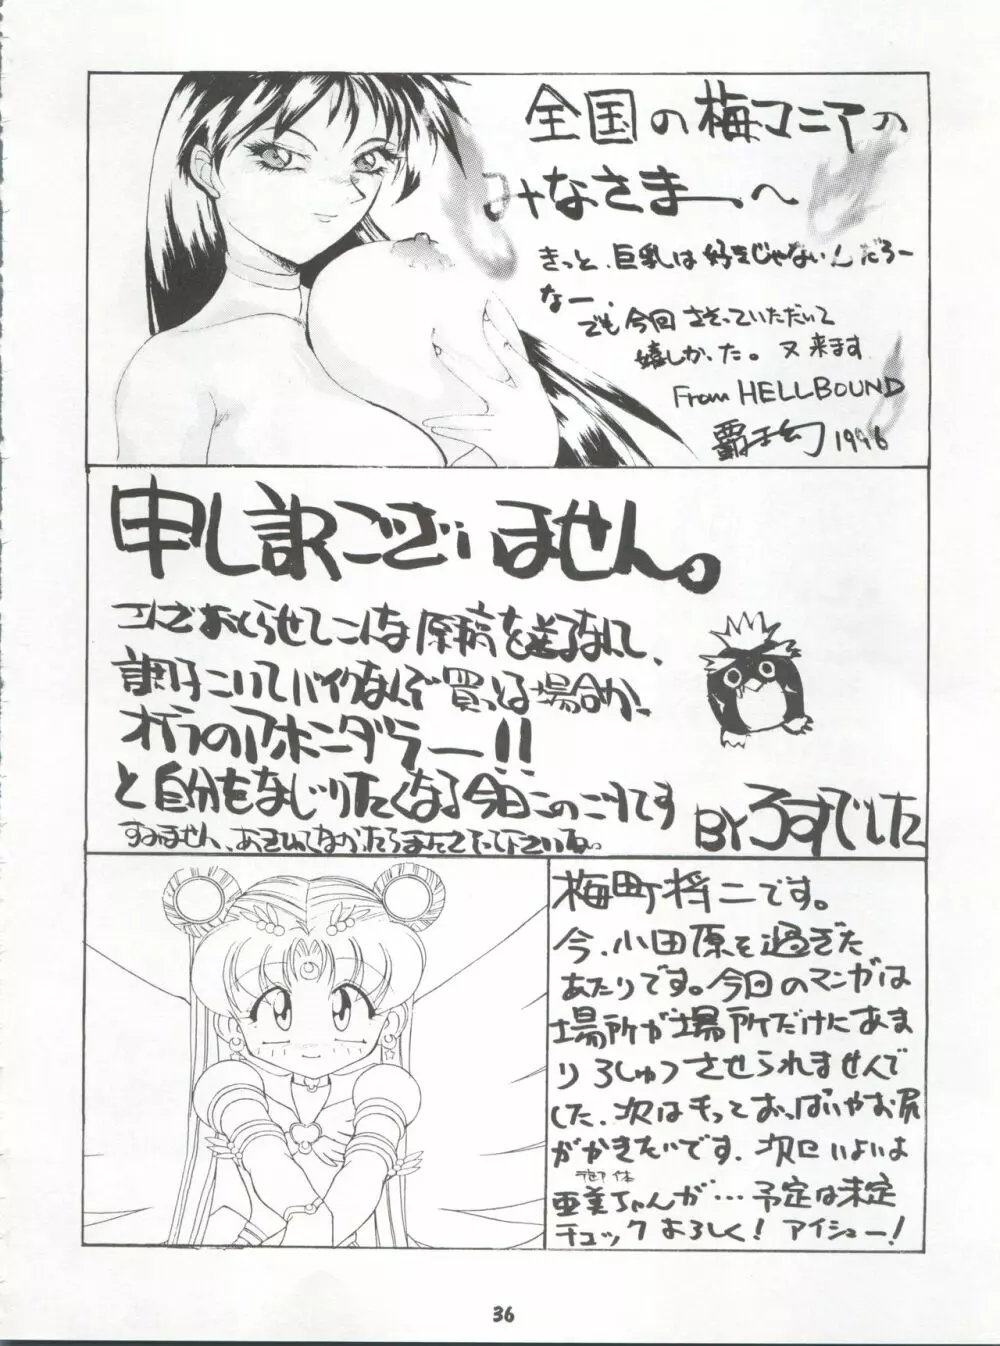 全国の梅マニアの
みなさまー、へ
きっと、巨乳は好きじゃないんだろー
なー、
でも今回さそっていただいて
嬉しかった。又来ます
From HELLBOUND
1996
申し訳ございません。
こんなにおくらせてこんな原稿を送るなんて、
調子こいてバイクなんぞ買っとる場合か、
オイラのアホンダラー!!
と自分をなじりたくなる今日このごろです
すみません、あきれてなかったらまたさそって下さいね。
BYろすでした
梅町将二です。
今、小田原を過ぎた
あたりです。今回のマンガは
場所が場所だけにあま
りろしゅつさせられませんで
した、次はもっとおっぱいやお尻
がかきたいです、次はいよいよ
亜美ちゃんが…予定は未定
チェックよろしく! アイシュー!
36